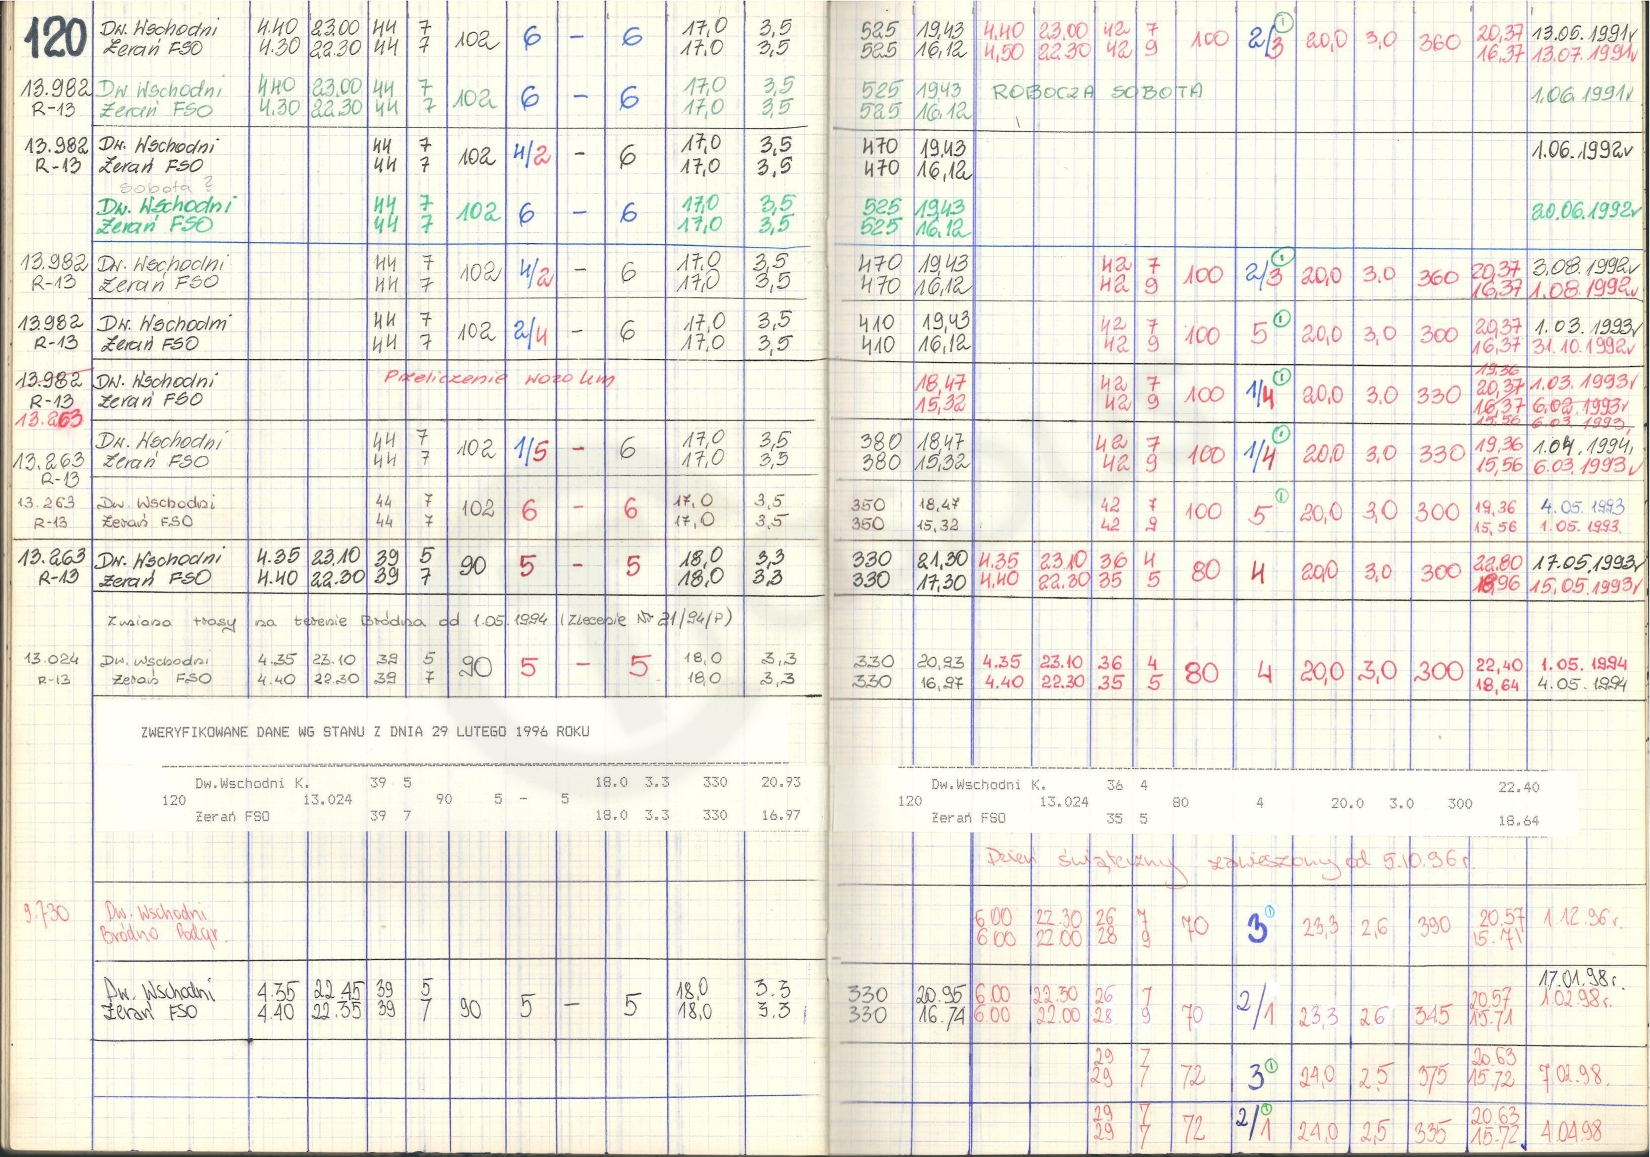 120 Dw. Wschodni 4.40 23.00 44 7 102 6 - 6 17,0 3,5 525 19,43 4,40 23.00 42 7 100 2/3 ① 20,0 3,0 360 20,37 13.05.1991r
Żerań FSO 4.30 22.30 44 7 17,0 3,5 525 16,12 4,50 22.30 42 9 16,37 13.07.1991r
13.982 Dw. Wschodni 4.40 23.00 44 7 102 6 - 6 17,0 3,5 525 19,43 ROBOCZA SOBOTA 1.06.1991r
R-13 Żerań FSO 4.30 22.30 44 7 17,0 3,5 525 16,12
13.982 Dw. Wschodni 44 7 102 4/2 - 6 17,0 3,5 470 19,43 1.06.1992r
R-13 Żerań FSO 44 7 17,0 3,5 470 16,12
sobota ?
Dw. Wschodni 44 7 102 6 - 6 17,0 3,5 525 19,43 20.06.1992r
Żerań FSO 44 7 17,0 3,5 525 16,12
13.982 Dw. Wschodni 44 7 102 4/2 - 6 17,0 3,5 470 19,43 42 7 100 2/3 ① 20,0 3,0 360 20,37 3.08.1992r
R-13 Żerań FSO 44 7 17,0 3,5 470 16,12 42 9 16,37 1.08.1992r
13.982 Dw. Wschodni 44 7 102 2/4 - 6 17,0 3,5 410 19,43 42 7 100 5 ① 20,0 3,0 300 20,37 1.03.1993r
R-13 Żerań FSO 44 7 17,0 3,5 410 16,12 42 9 16,37 31.10.1992r
13.982 Dw. Wschodni Przeliczenie wozokm 18,47 42 7 100 1/4 ① 20,0 3.0 330 19,36 20,37 1.03.1993r
R-13 Żerań FSO 15,32 42 9 16,37 6.02.1993r
13.263 15,56 6.03.1993,
Dw. Wschodni 44 7 102 1/5 - 6 17,0 3,5 380 18,47 42 7 100 1/4 ① 20,0 3,0 330 19,36 1.04.1994,
13.263 Żerań FSO 44 7 17,0 3,5 380 15,32 42 9 15,56 6.03.1993r
R-13
13.263 Dw. Wschodni 44 7 102 6 - 6 17,0 3,5 350 18,47 42 7 100 5 ① 20,0 3,0 300 19,36 4.05.1993
R-13 Żerań FSO 44 7 17,0 3,5 350 15,32 42 9 15,56 1.05.1993.
13.263 Dw. Wschodni 4.35 23.10 39 5 90 5 - 5 18,0 3,3 330 21,30 4.35 23.10 36 4 80 4 20,0 3,0 300 22,80 17.05.1993r
R-13 Żerań FSO 4.40 22.30 39 7 18,0 3,3 330 17,30 4,40 22.30 35 5 18,96 15.05.1993r
Zmiana trasy na terenie Bródna od 1.05.1994 (Zlecenie Nr 21/94/P)
13.024 Dw. Wschodni 4.35 23.10 39 5 90 5 - 5 18,0 3,3 330 20,93 4.35 23.10 36 4 80 4 20,0 3,0 300 22,40 1.05.1994
R-13 Żerań FSO 4.40 22.30 39 7 18,0 3,3 330 16,97 4.40 22.30 35 5 18,64 4.05.1994
ZWERYFIKOWANE DANE WG STANU Z DNIA 29 LUTEGO 1996 ROKU
Dw.Wschodni K. 39 5 18.0 3.3 330 20.93 Dw.Wschodni K. 36 4 22.40
120 13.024 90 5 - 5 120 13.024 80 4 20.0 3.0 300
Żerań FSO 39 7 18.0 3.3 330 16.97 Żerań FSO 35 5 18.64
Dzień świąteczny zawieszony od 5.10.96 r.
9.730 Dw. Wschodni 6.00 22.30 26 7 70 3 ① 23,3 2,6 390 20,57 1.12.96r.
Bródno Podgr. 6.00 22.00 28 9 15.71
Dw. Wschodni 4.35 22.45 39 5 90 5 - 5 18,0 3.3 330 20.95 6.00 22.30 26 7 70 2/1 23,3 2,6 345 20.57 17.01.98r.
Żerań FSO 4.40 22.35 39 7 18,0 3.3 330 16.74 6.00 22.00 28 9 15.71 1.02.98r.
29 7 72 3 ① 24,0 2,5 375 20.63 7.02.98.
29 7 15.72
29 7 72 2/1 ① 24,0 2,5 335 20.63 4.04.98
29 7 15.72